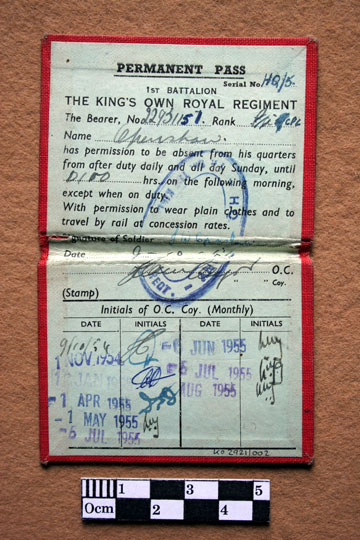 PERMANENT PASS
Serial No. HQ/5.
1ST BATTALION
THE KING'S OWN ROYAL REGIMENT
The Bearer, No. 22931157. Rank
Name Openshaw.
has permission to be absent from his quarters
from after duty daily and all day Sunday, until
0100 hrs. on the following morning,
except when on duty.
With permission to wear plain clothes and to
travel by rail at concession rates.
Signature of Soldier
Date
O.C.
" " Coy.
(Stamp)
Initials of O.C. Coy. (Monthly)
DATE INITIALS DATE INITIALS
9/10/54 -6 JUN 1955
1 NOV 1954 -5 JUL 1955
JAN AUG 1955
1 APR 1955
-1 MAY 1955
-6 JUL 1955
KO 2921/002
0cm 1 2 3 4 5